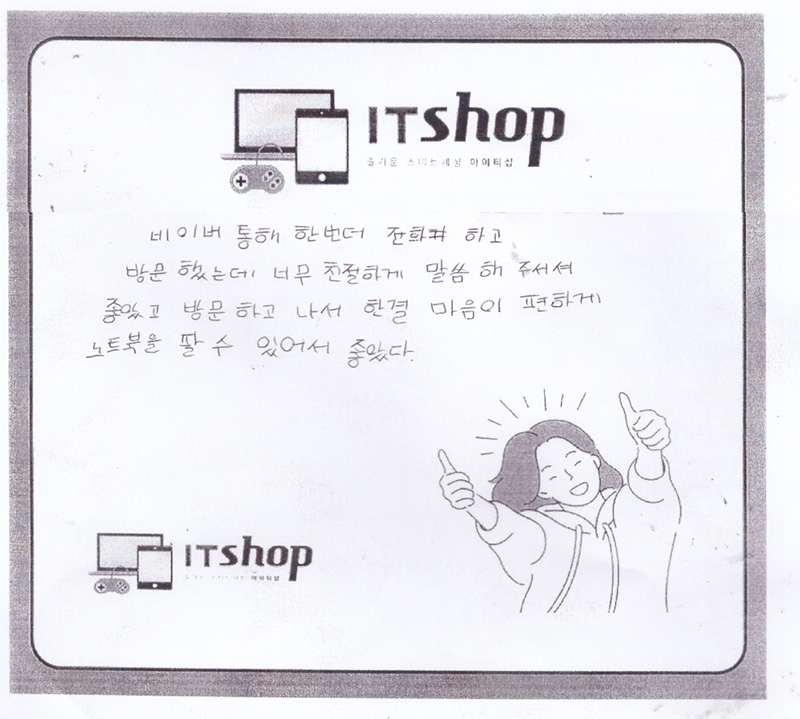 ITshop
즐거운 스마트세상 아이티샵
네이버 통해 한번더 전화 하고
방문 했는데 너무 친절하게 말씀 해 주셔서
좋았고 방문하고 나서 한결 마음이 편하게
노트북을 팔 수 있어서 좋았다.
ITshop
아이티샵